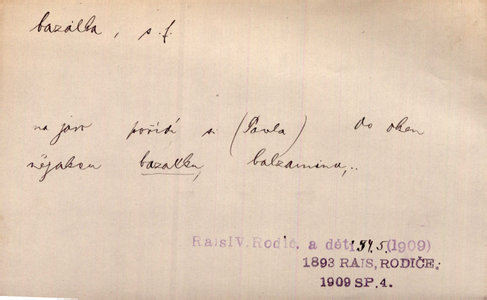 bazalka, s. f.
na jaro pořídí si (Pavla) do oken
nějakou bazalku, balzaminu,..
RaisIV. Rodič. a děti 194.5.(1909)
1893 RAIS, RODIČE.
1909 SP. 4.